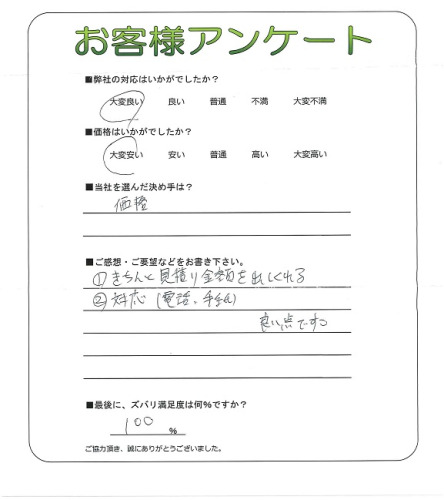 お客様アンケート
■弊社の対応はいかがでしたか？
大変良い 良い 普通 不満 大変不満
■価格はいかがでしたか？
大変安い 安い 普通 高い 大変高い
■当社を選んだ決め手は？
価格
■ご感想・ご要望などをお書き下さい。
①きちんと見積り金額を出してくれる
②対応（電話、手紙）
良い点ですっ
■最後に、ズバリ満足度は何%ですか？
100 %
ご協力頂き、誠にありがとうございました。